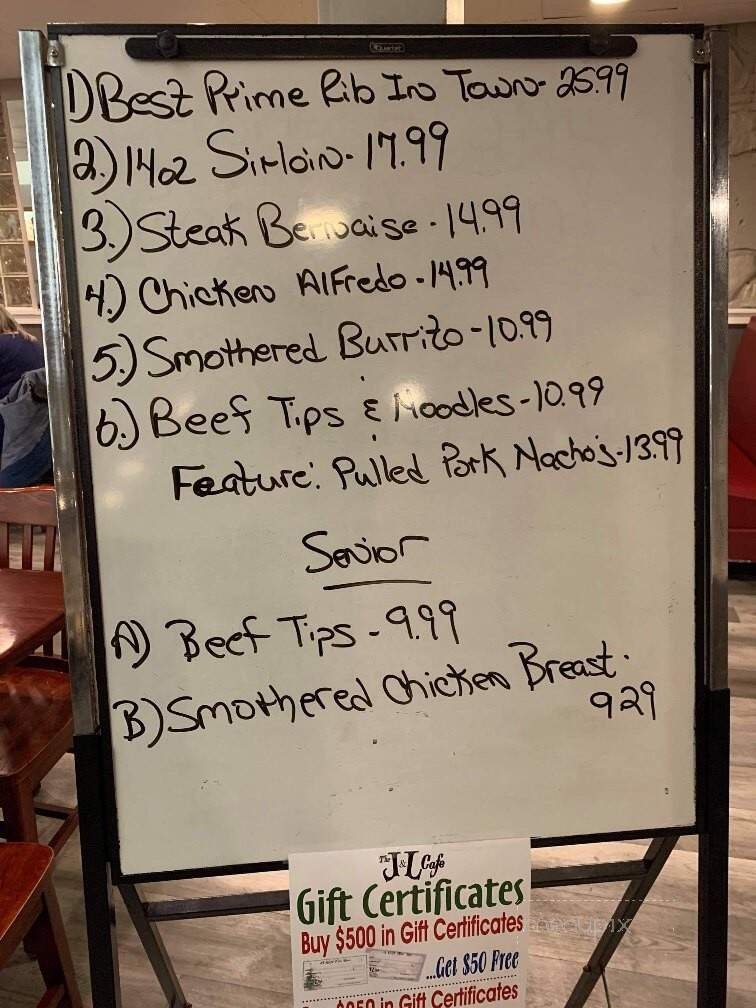 Quartet
1) Best Prime Rib In Town - 25.99
2.) 14oz Sirloin - 17.99
3.) Steak Bernaise - 14.99
4.) Chicken Alfredo - 14.99
5.) Smothered Burrito - 10.99
6.) Beef Tips & Noodles - 10.99
Feature: Pulled Pork Nacho's - 13.99
Senior
A) Beef Tips - 9.99
B) Smothered Chicken Breast.
929
The J&L Cafe
Gift Certificates
Buy $500 in Gift Certificates
...Get $50 Free
$250 in Gift Certificates